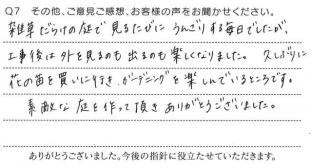 Q7 その他、ご意見ご感想、お客様の声をお聞かせください。
雑草だらけの庭で見るたびにうんざりする毎日でしたが、
工事後は外を見るのも出るのも楽しくなりました。久しぶりに
花の苗を買いに行き、ガーデニングを楽しんでいるところです。
素敵な庭を作って頂きありがとうございました。
ありがとうございました。今後の指針に役立たせていただきます。